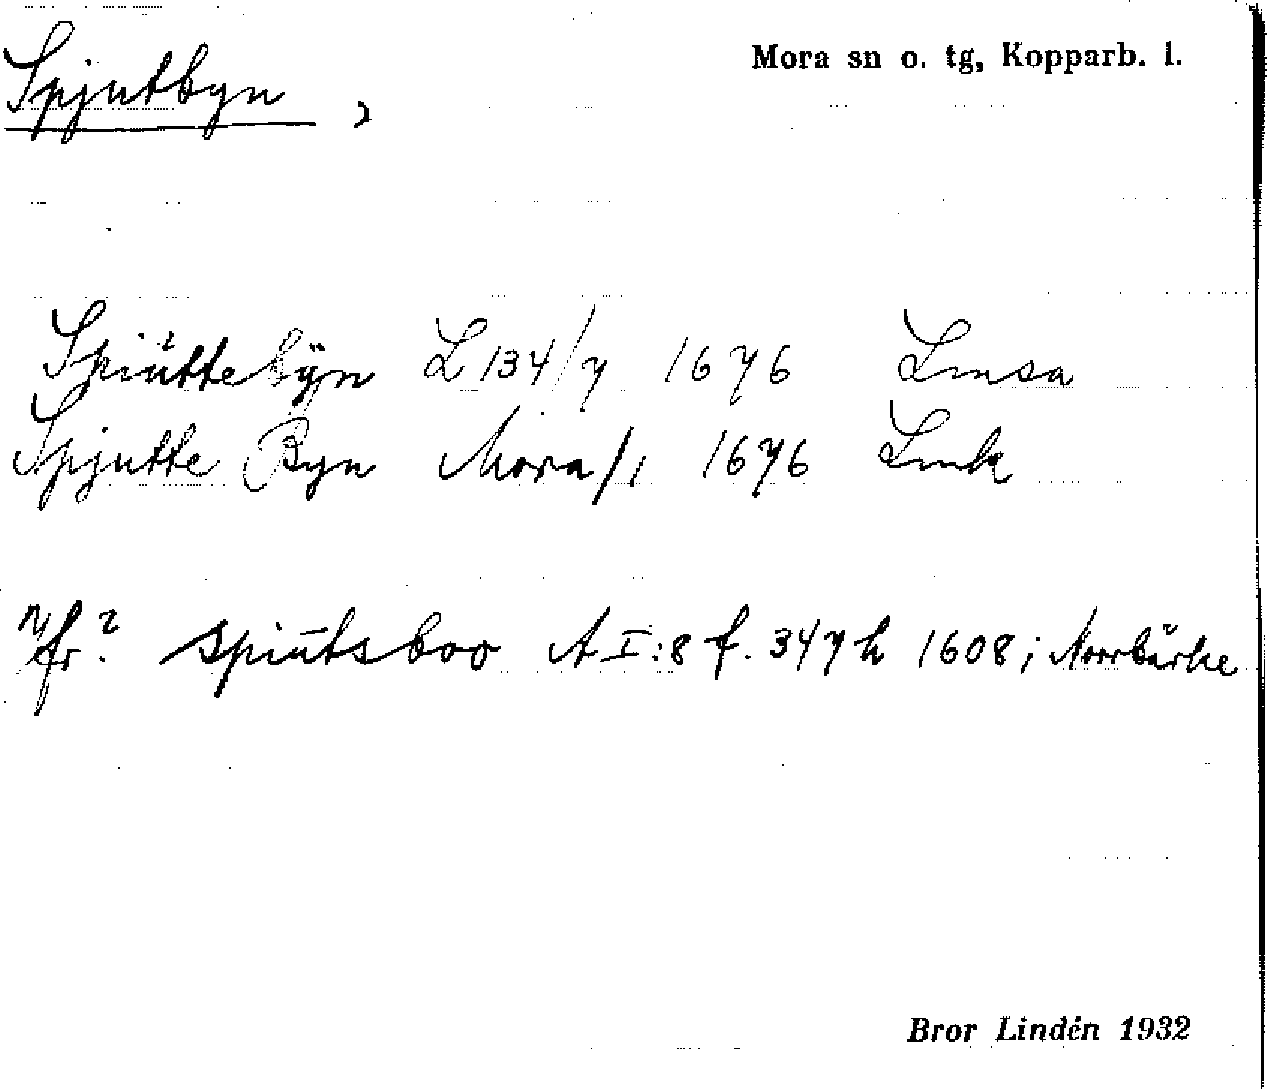 Spjutbyn,
Mora sn o. tg, Kopparb. l.
Spiüttebÿn L 134/7 1676 Lmsa
Spjutte Byn Mora/1 1676 Lmk
Jfr? spiutsboo A I:8 f. 347 h 1608; Norrbärke
Bror Lindén 1932